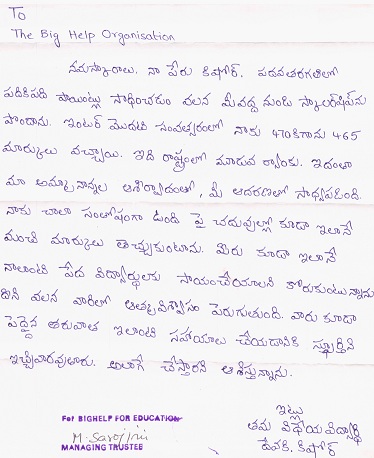 To
The Big Help Organisation
నమస్కారాలు. నా పేరు కిషోర్. పదవతరగతిలో
పదికిపది పాయింట్లు సాధించడం వలన మీవద్ద నుండి స్కాలర్‌షిప్‌ను
పొందాను. ఇంటర్ మొదటి సంవత్సరంలో నాకు 470కిగాను 465
మార్కులు వచ్చాయి. ఇది రాష్ట్రంలో మూడవ ర్యాంకు. ఇదంతా
మా అమ్మానాన్నల ఆశీర్వాదంతో, మీ ఆదరణతో సాధ్యపడింది.
నాకు చాలా సంతోషంగా ఉంది పై చదువుల్లో కూడా ఇలానే
మంచి మార్కులు తెచ్చుకుంటాను. మీరు కూడా ఇలానే
నాలాంటి పేద విద్యార్థులకు సాయంచేయాలని కోరుకుంటున్నాను
దీని వలన వారిలో ఆత్మవిశ్వాసం పెరుగుతుంది. వారు కూడా
పెద్దైన తరువాత ఇలాంటి సహాయాలు చేయడానికి స్ఫూర్తిని
ఇచ్చినవారవుతారు. అలాగే చేస్తారని ఆశిస్తున్నాను.
ఇట్లు
తమ విధేయ విద్యార్థి
దేవకి. కిషోర్
For BIGHELP FOR EDUCATION
M. Sarojini
MANAGING TRUSTEE